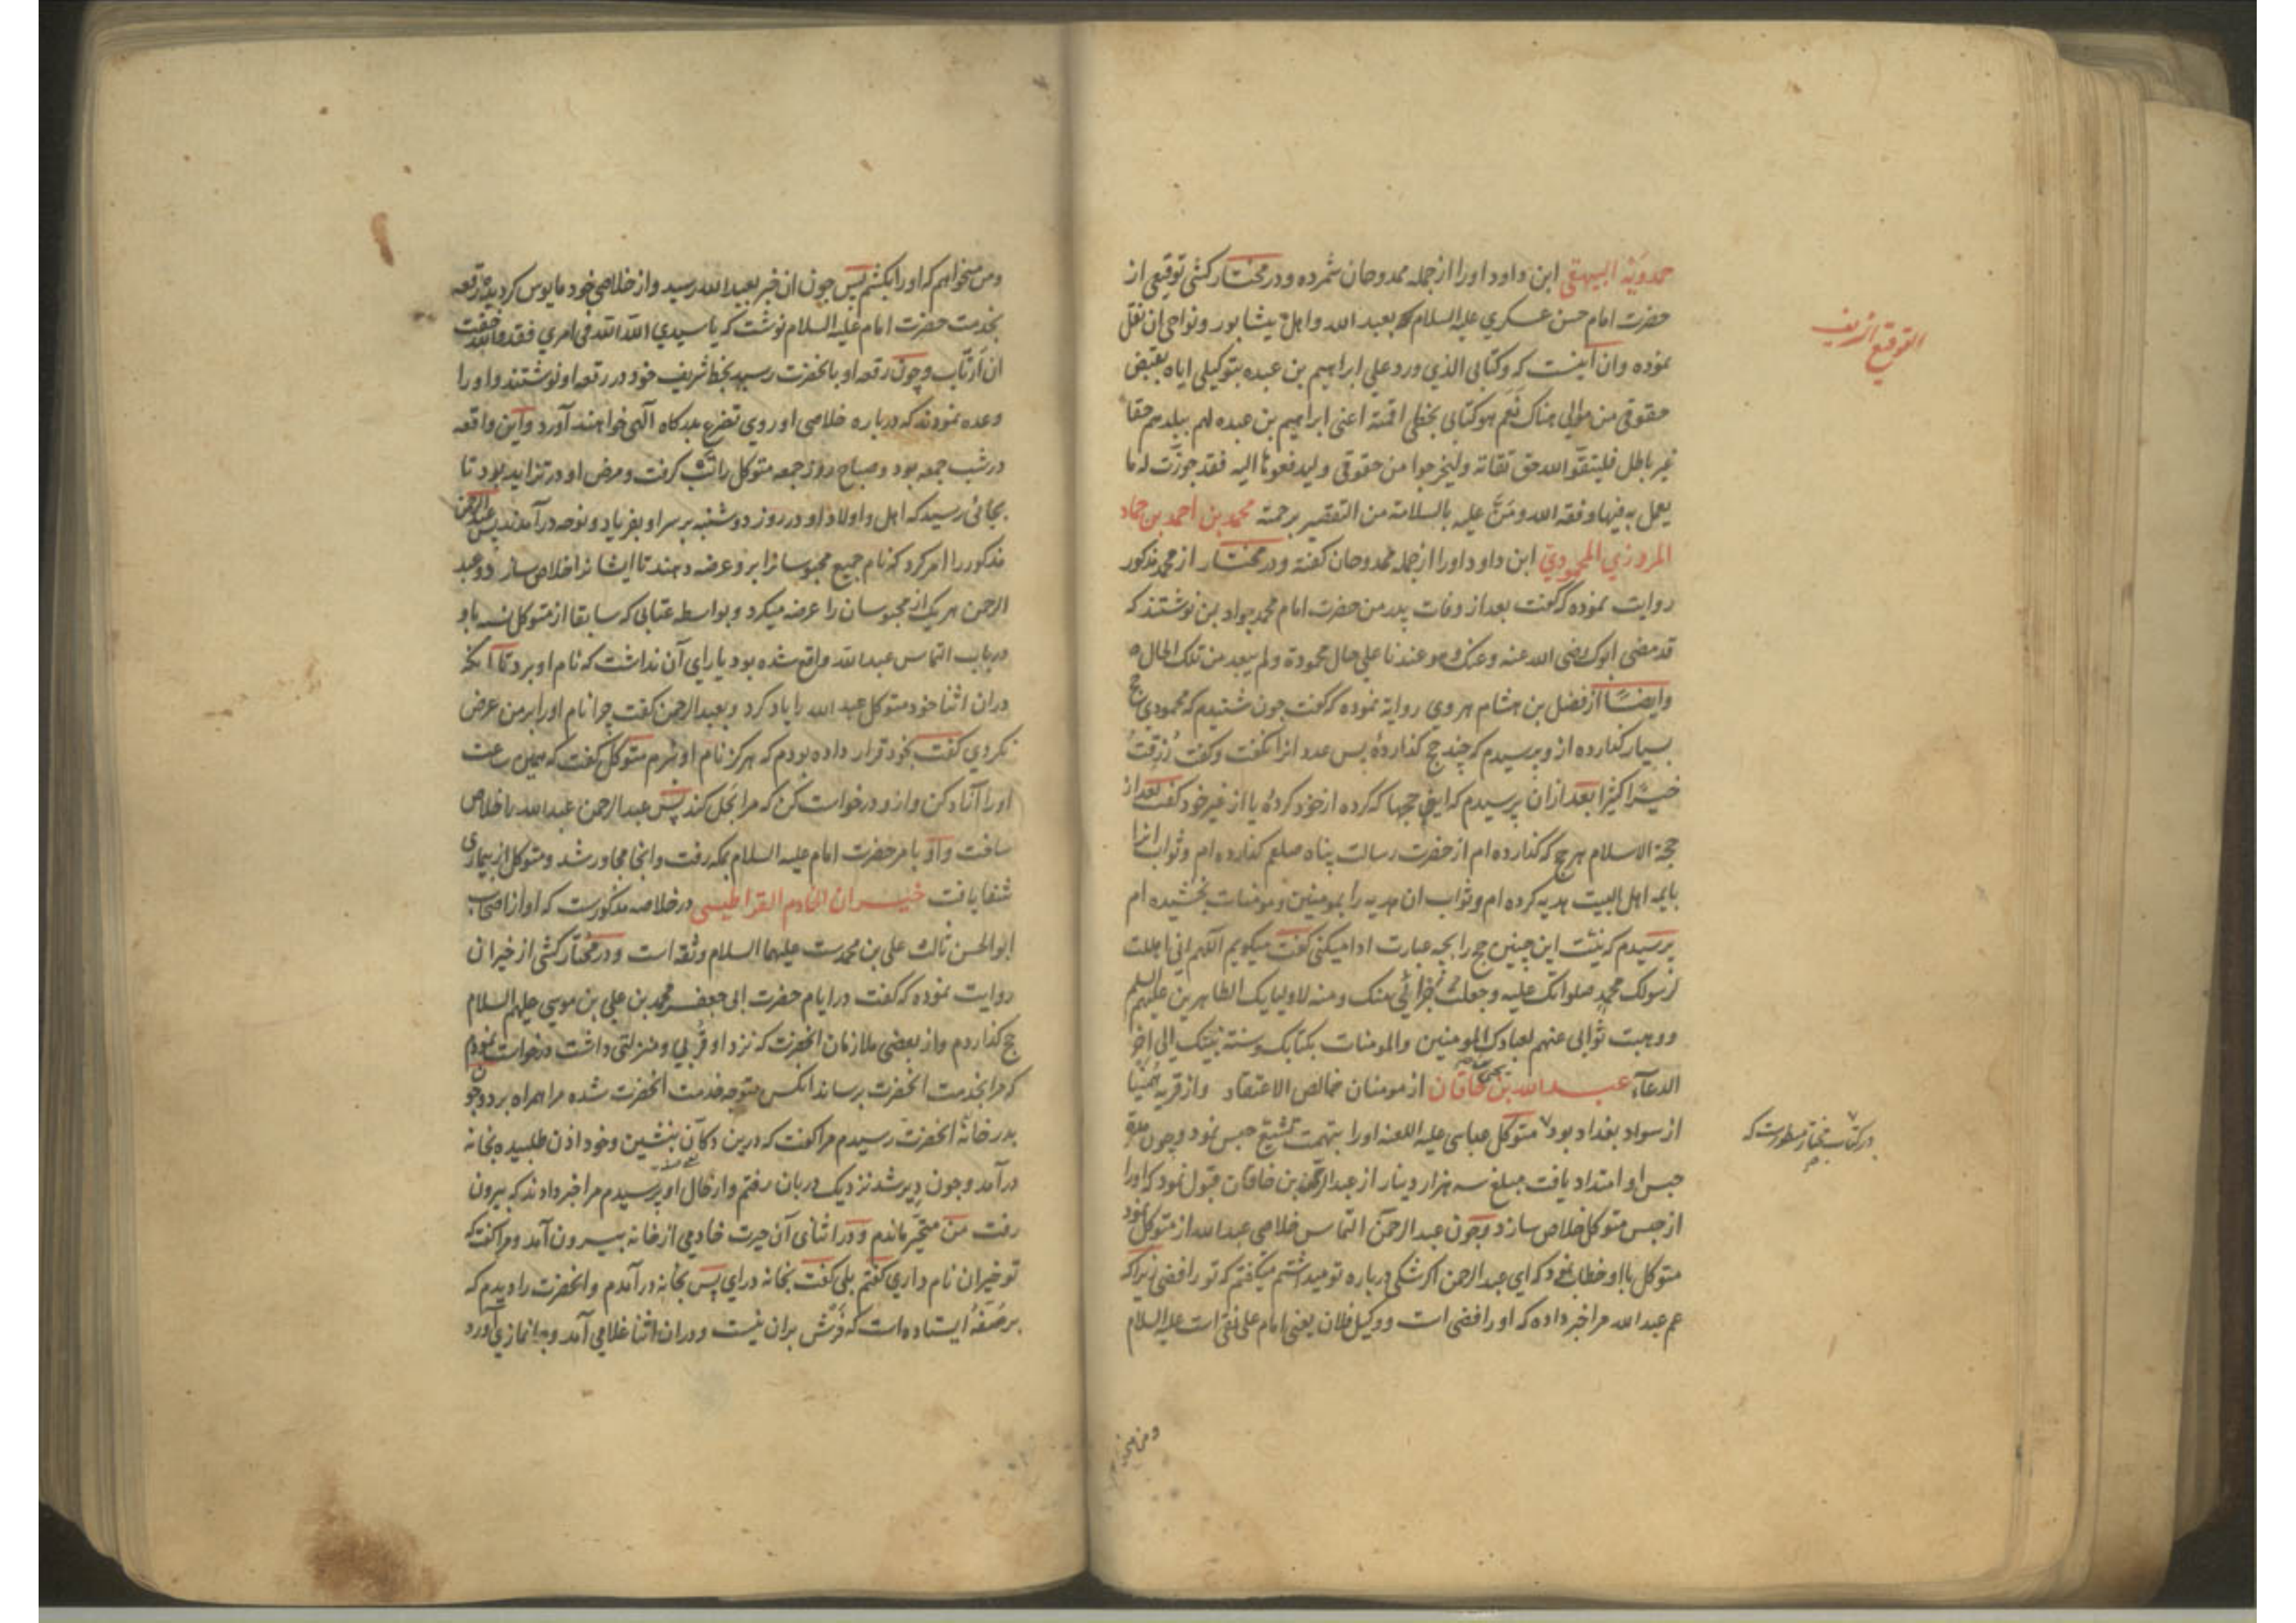 حمدویه البیهقی ابن داود اورا از جمله ممدوحان شمرده و در مختار کشی توقیعی از
حضرت امام حسن عسکری علیه السلام بعبد الله و اهل نیشابور و نواحی ان نقل
نموده وان اینست که وکتابی الذی ورد علی ابراهیم بن عبده بتوکیلی ایاه بقبض
حقوقی من موالی هناک نعم هو کتابی بخطی اقمته اعنی ابراهیم بن عبده لهم ببلدهم حقا
غیر باطل فلیتقوا الله حق تقاته ولیخرجوا من حقوقی ولیدفعوها الیه فقد جوزت له ما
یعمل به فیها وفقه الله ومن علیه بالسلامة من التقصیر برحمته محمد بن احمد بن حماد
المروزی المحمودی ابن داود اورا از جمله ممدوحان گفته و در مختار از محمد مذکور
روایت نموده که گفت بعد از وفات پدر من حضرت امام محمد جواد بمن نوشتند که
قد مضی ابوک رضی الله عنه وعنک وهو عندنا علی حال محمودة ولم یبعد من تلک الحال
وایضا از فضل بن هشام هروی روایة نموده که گفت چون شنیدم که محمودی حج
بسیار گذارده از و پرسیدم که چند حج گذاردۀ پس عدد انرا نگفت و گفت رزقت
خیرا کثیرا بعد ازان پرسیدم که این حجها که کرده از خود کردۀ یا از غیر خود گفت بعد از
حجة الاسلام هر حج که گذارده ام از حضرت رسالت پناه صلعم گذارده ام وثواب انرا
بایمه اهل البیت هدیه کرده ام وثواب ان هدیه را بمومنین ومومنات بخشیده ام
پرسیدم که نیت این چنین حج را بچه عبارت ادا میکنی گفت میگویم اللهم انی اهللت
لرسولک محمد صلواتک علیه وجعلت جزائی منک ومنه لاولیایک الطاهرین علیهم السلم
ووهبت ثوابی عنهم لعبادک المومنین والمومنات بکتابک وسنة نبیک الی اخر
الدعآء عبد الله بن یحیی خاقان از مومنان خالص الاعتقاد و از قریه
از سواد بغداد بود متوکل عباسی علیه اللعنه اورا بتهمت تشیع حبس نمود و چون مدة
حبس او امتداد یافت مبلغ سه هزار دینار از عبد الرحمن بن خاقان قبول نمود که اورا
از حبس متوکل خلاص سازد و چون عبد الرحمن التماس خلاصی عبد الله از متوکل نمود
متوکل با او خطاب نمود که ای عبد الرحمن اگر شکی درباره تو میداشتم میگفتم که تو رافضی زیرا که
عم عبد الله مرا خبر داده که او رافضی است و وکیل فلان یعنی امام علی نقی است علیه السلام
التوقیع
در کتاب مختار مسطورست که
ومن میخواهم
ومن میخواهم که اورا بکشم پس چون ان خبر بعبد الله رسید و از خلاصی خود مایوس گردید رقعه
بخدمت حضرت امام علیه السلام نوشت که یا سیدی الله الله فی امری فقد والله خفت
ان ارتاب و چون رقعه او بانحضرت رسید بخط شریف خود در رقعه او نوشتند و اورا
وعده نمودند که درباره خلاصی او روی تضرع بدرگاه الهی خواهند آورد واین واقعه
در شب جمعه بود و صباح روز جمعه متوکل را تب گرفت و مرض او در تزاید بود تا
بجائی رسید که اهل و اولاد او در روز دوشنبه بر سر او بفریاد و نوحه در آمدند پس عبد الرحمن
مذکور را امر کرد که نام جمیع محبوسانرا برو عرضه دهند تا ایشانرا خلاص سازد و عبد
الرحمن هر یک از محبوسان را عرضه میکرد و بواسطه عتابی که سابقا از متوکل نسبه باو
در باب التماس عبد الله واقع شده بود یارای آن نداشت که نام او برد تا آنکه
دران اثنا خود متوکل عبد الله را یاد کرد و بعبد الرحمن گفت چرا نام اورا بر من عرض
نکردی گفت بخود قرار داده بودم که هرگز نام او نبرم متوکل گفت که همین ساعت
اورا آزاد کن و از و درخواست کن که مرا بحل کند پس عبد الرحمن عبد الله را خلاص
ساخت و او بامر حضرت امام علیه السلام بمکه رفت و انجا مجاور شد و متوکل از بیماری
شفا یافت خیران الخادم القراطیسی در خلاصه مذکورست که او از اصحاب
ابو الحسن ثالث علی بن محمدست علیهما السلام و ثقه است و در مختار کشی از خیران
روایت نموده که گفت در ایام حضرت ابی جعفر محمد بن علی بن موسی علیهم السلام
حج گذاردم و از بعضی ملازمان انحضرت که نزد او قربی و منزلتی داشت درخواست نمودم
که مرا بخدمت انحضرت برساند انکس متوجه خدمت انحضرت شده مرا همراه برد و چون
بدر خانۀ انحضرت رسیدم مرا گفت که درین دکان بنشین و خود اذن طلبیده بخانه
در آمد و چون دیر شد نزدیک دربان رفتم و از حال او پرسیدم مرا خبر دادند که بیرون
رفت من متحیر ماندم و در اثنای آن حیرت خادمی از خانه بیرون آمد و مرا گفت که
تو خیران نام داری گفتم بلی گفت بخانه درای پس بخانه در آمدم و انحضرت را دیدم که
بر صفۀ ایستاده است که فرش بران نیست و دران اثنا غلامی آمد و جانمازی آورد